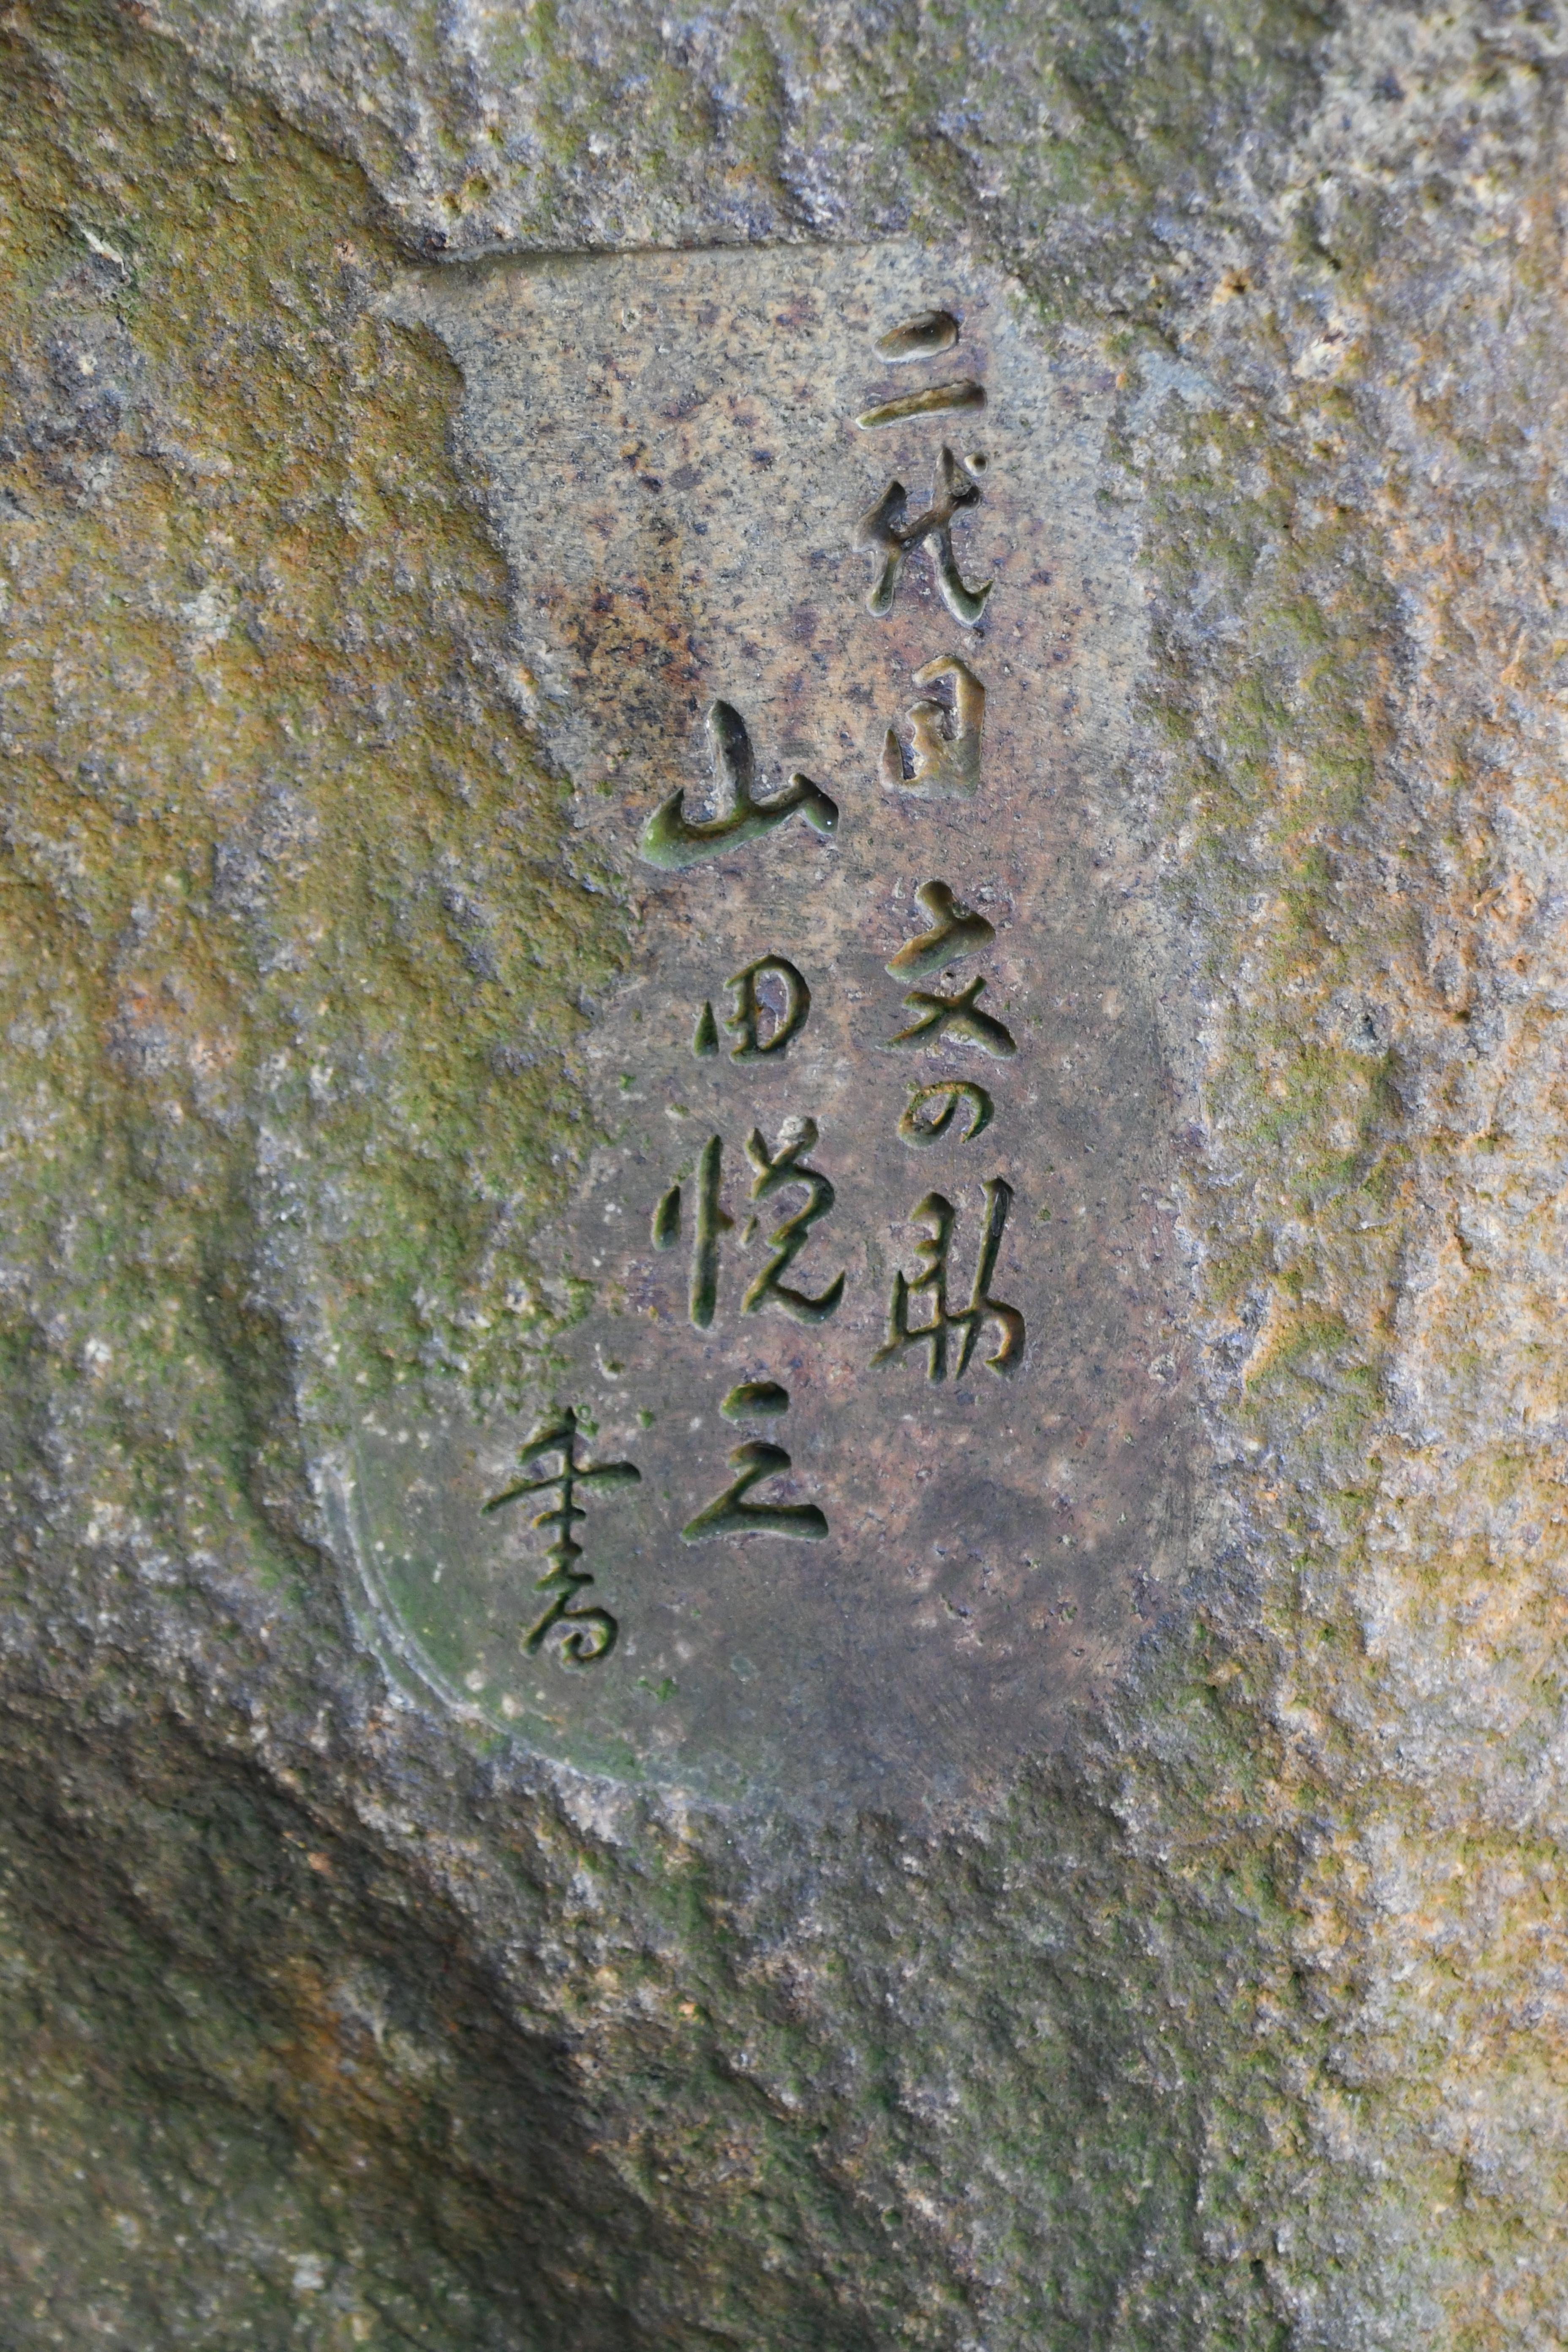 二代目文の助
山田悦三
書